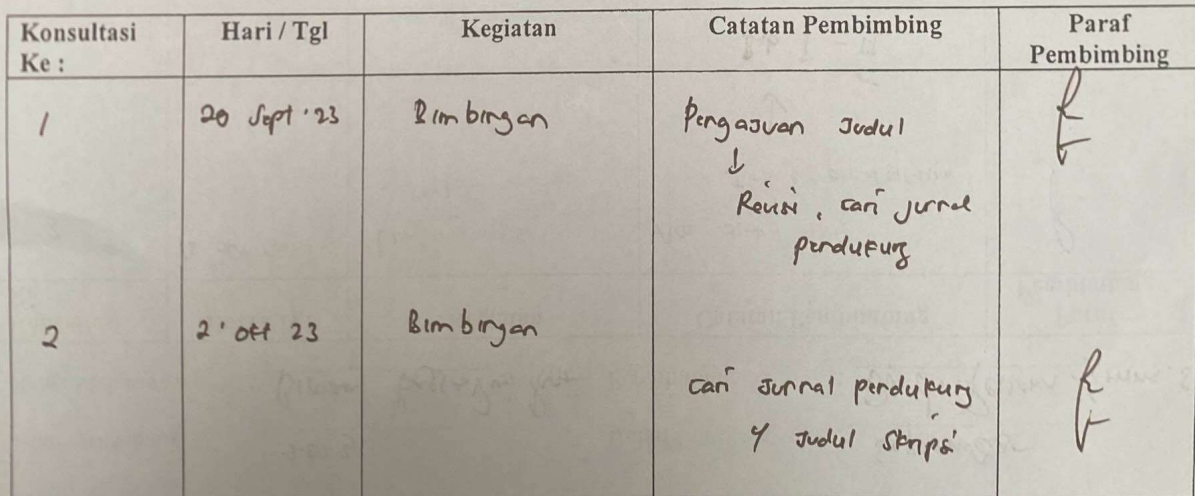 Konsultasi Ke : Hari / Tgl Kegiatan Catatan Pembimbing Paraf Pembimbing
1 20 Sept '23 Bimbingan Pengajuan Judul
↓
Revisi, cari jurnal
pendukung
2 2 Okt 23 Bimbingan
cari jurnal pendukung
y judul skripsi